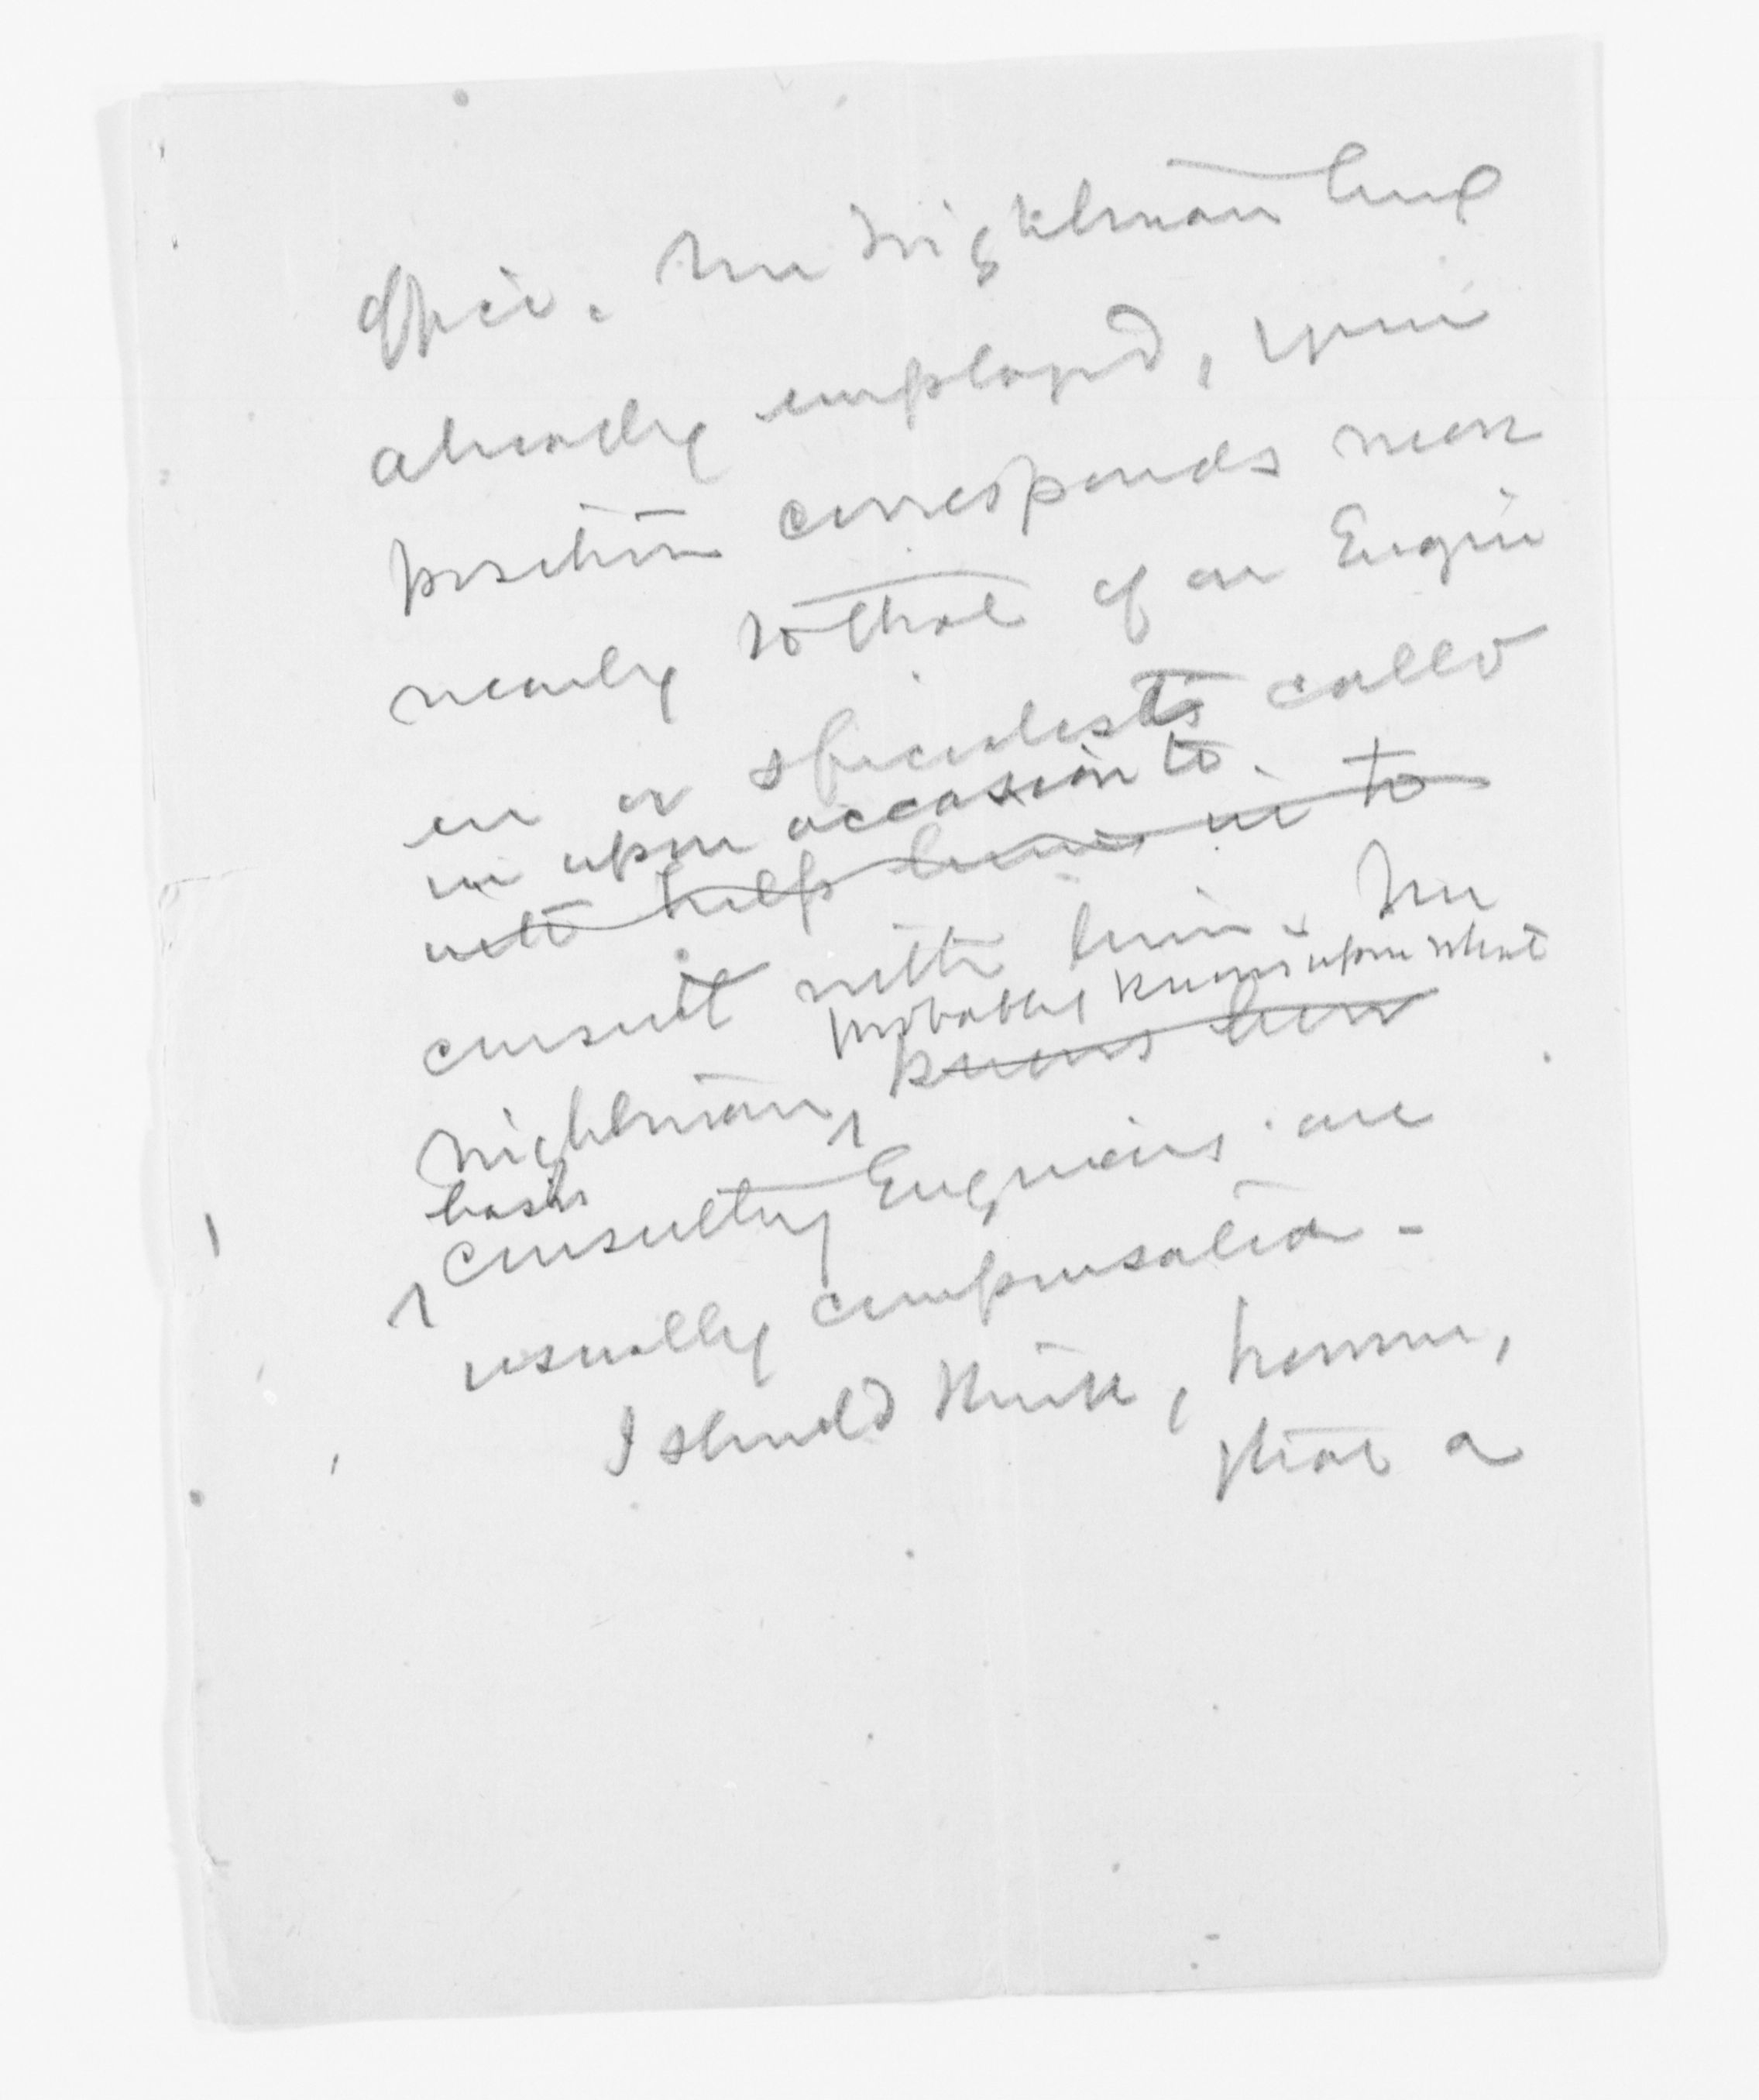 office. Mr Wightman being
already employed, your
position corresponds more
nearly to that of an Engin
eer or specialist called
in upon occasion to
with help him in to
consult with him. Mr
probably knows upon what
Wightman, knows how
basis
consulting Engineers are
usually compensated -
I should think, however,
that a